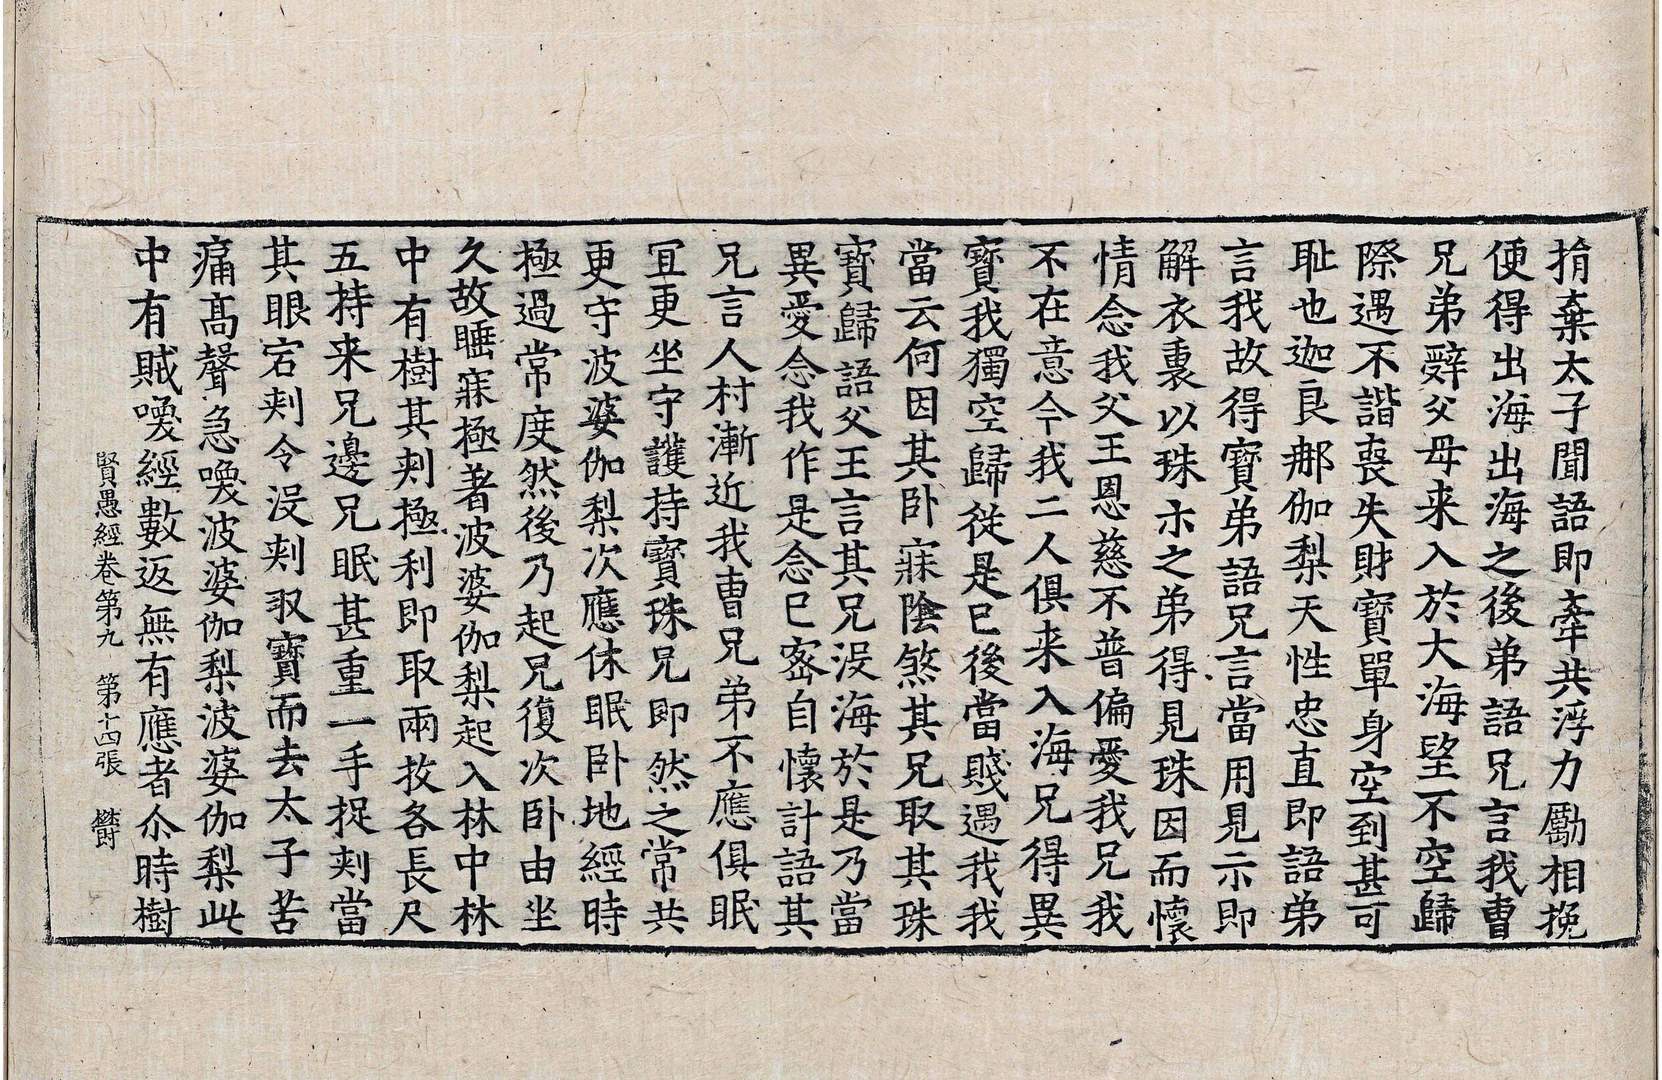 捐棄太子聞語即牽共浮力勵相挽
便得出海出海之後弟語兄言我曹
兄弟辭父母来入於大海望不空歸
際遇不諧喪失財寶單身空到甚可
耻也迦良那伽梨天性忠直即語弟
言我故得寶弟語兄言當用見示即
解衣裏以珠示之弟得見珠因而懷
情念我父王恩慈不普偏愛我兄我
不在意今我二人俱来入海兄得異
寶我獨空歸從是已後當賤遇我我
當云何因其卧寐陰煞其兄取其珠
寶歸語父王言其兄没海於是乃當
異愛念我作是念已密自懷計語其
兄言人村漸近我曹兄弟不應俱眠
宜更坐守護持寶珠兄即然之常共
更守波婆伽梨次應休眠卧地經時
極過常度然後乃起兄復次卧由坐
久故睡寐極著波婆伽梨起入林中林
中有樹其刾極利即取兩枚各長尺
五持来兄邊兄眠甚重一手捉刾當
其眼宕刾令没刾取寶而去太子苦
痛髙聲急喚波婆伽梨波婆伽梨此
中有賊喚經數返無有應者尒時樹
賢愚經卷第九 第十四張 欝